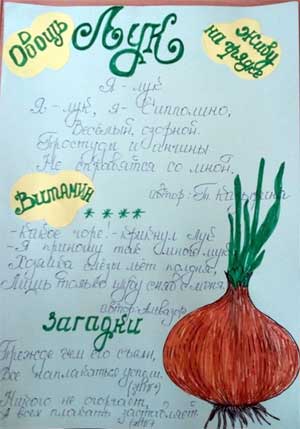 Овощь
Лук
Живу
на грядке
Я - лук
Я - лук, я - Чипполино,
Весёлый, озорной.
Простуды и ангины
Не справятся со мной.
автор: Т.
Витамин
* * * *
- Какое горе! - крикнул лук
- Я приношу так много мук
Хозяйка слёзы льёт
Лишь только шкуру снять с меня.
автор:
Загадки
Прежде чем его съели,
Все наплакаться успели.
(лук)
Никого не огорчает,
А всех плакать заставляет.
(лук)